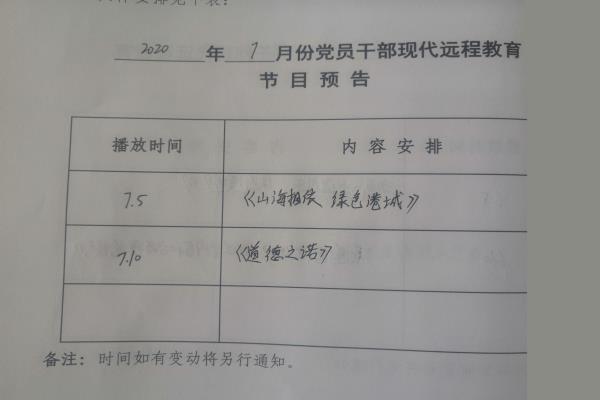 2020 年 7 月份党员干部现代远程教育
节目预告
播放时间 内容安排
7.5 《山海相依 绿色港城》
7.10 《道德之诺》
备注：时间如有变动将另行通知。